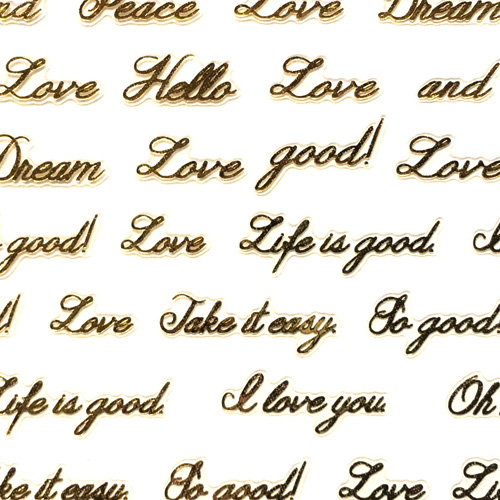 nd Peace Love Dream
Love Hello Love and
Dream Love good! Love
good! Love Life is good. I
! Love Take it easy. So good
Life is good. I love you. Oh
ke it easy. So good! Love Li